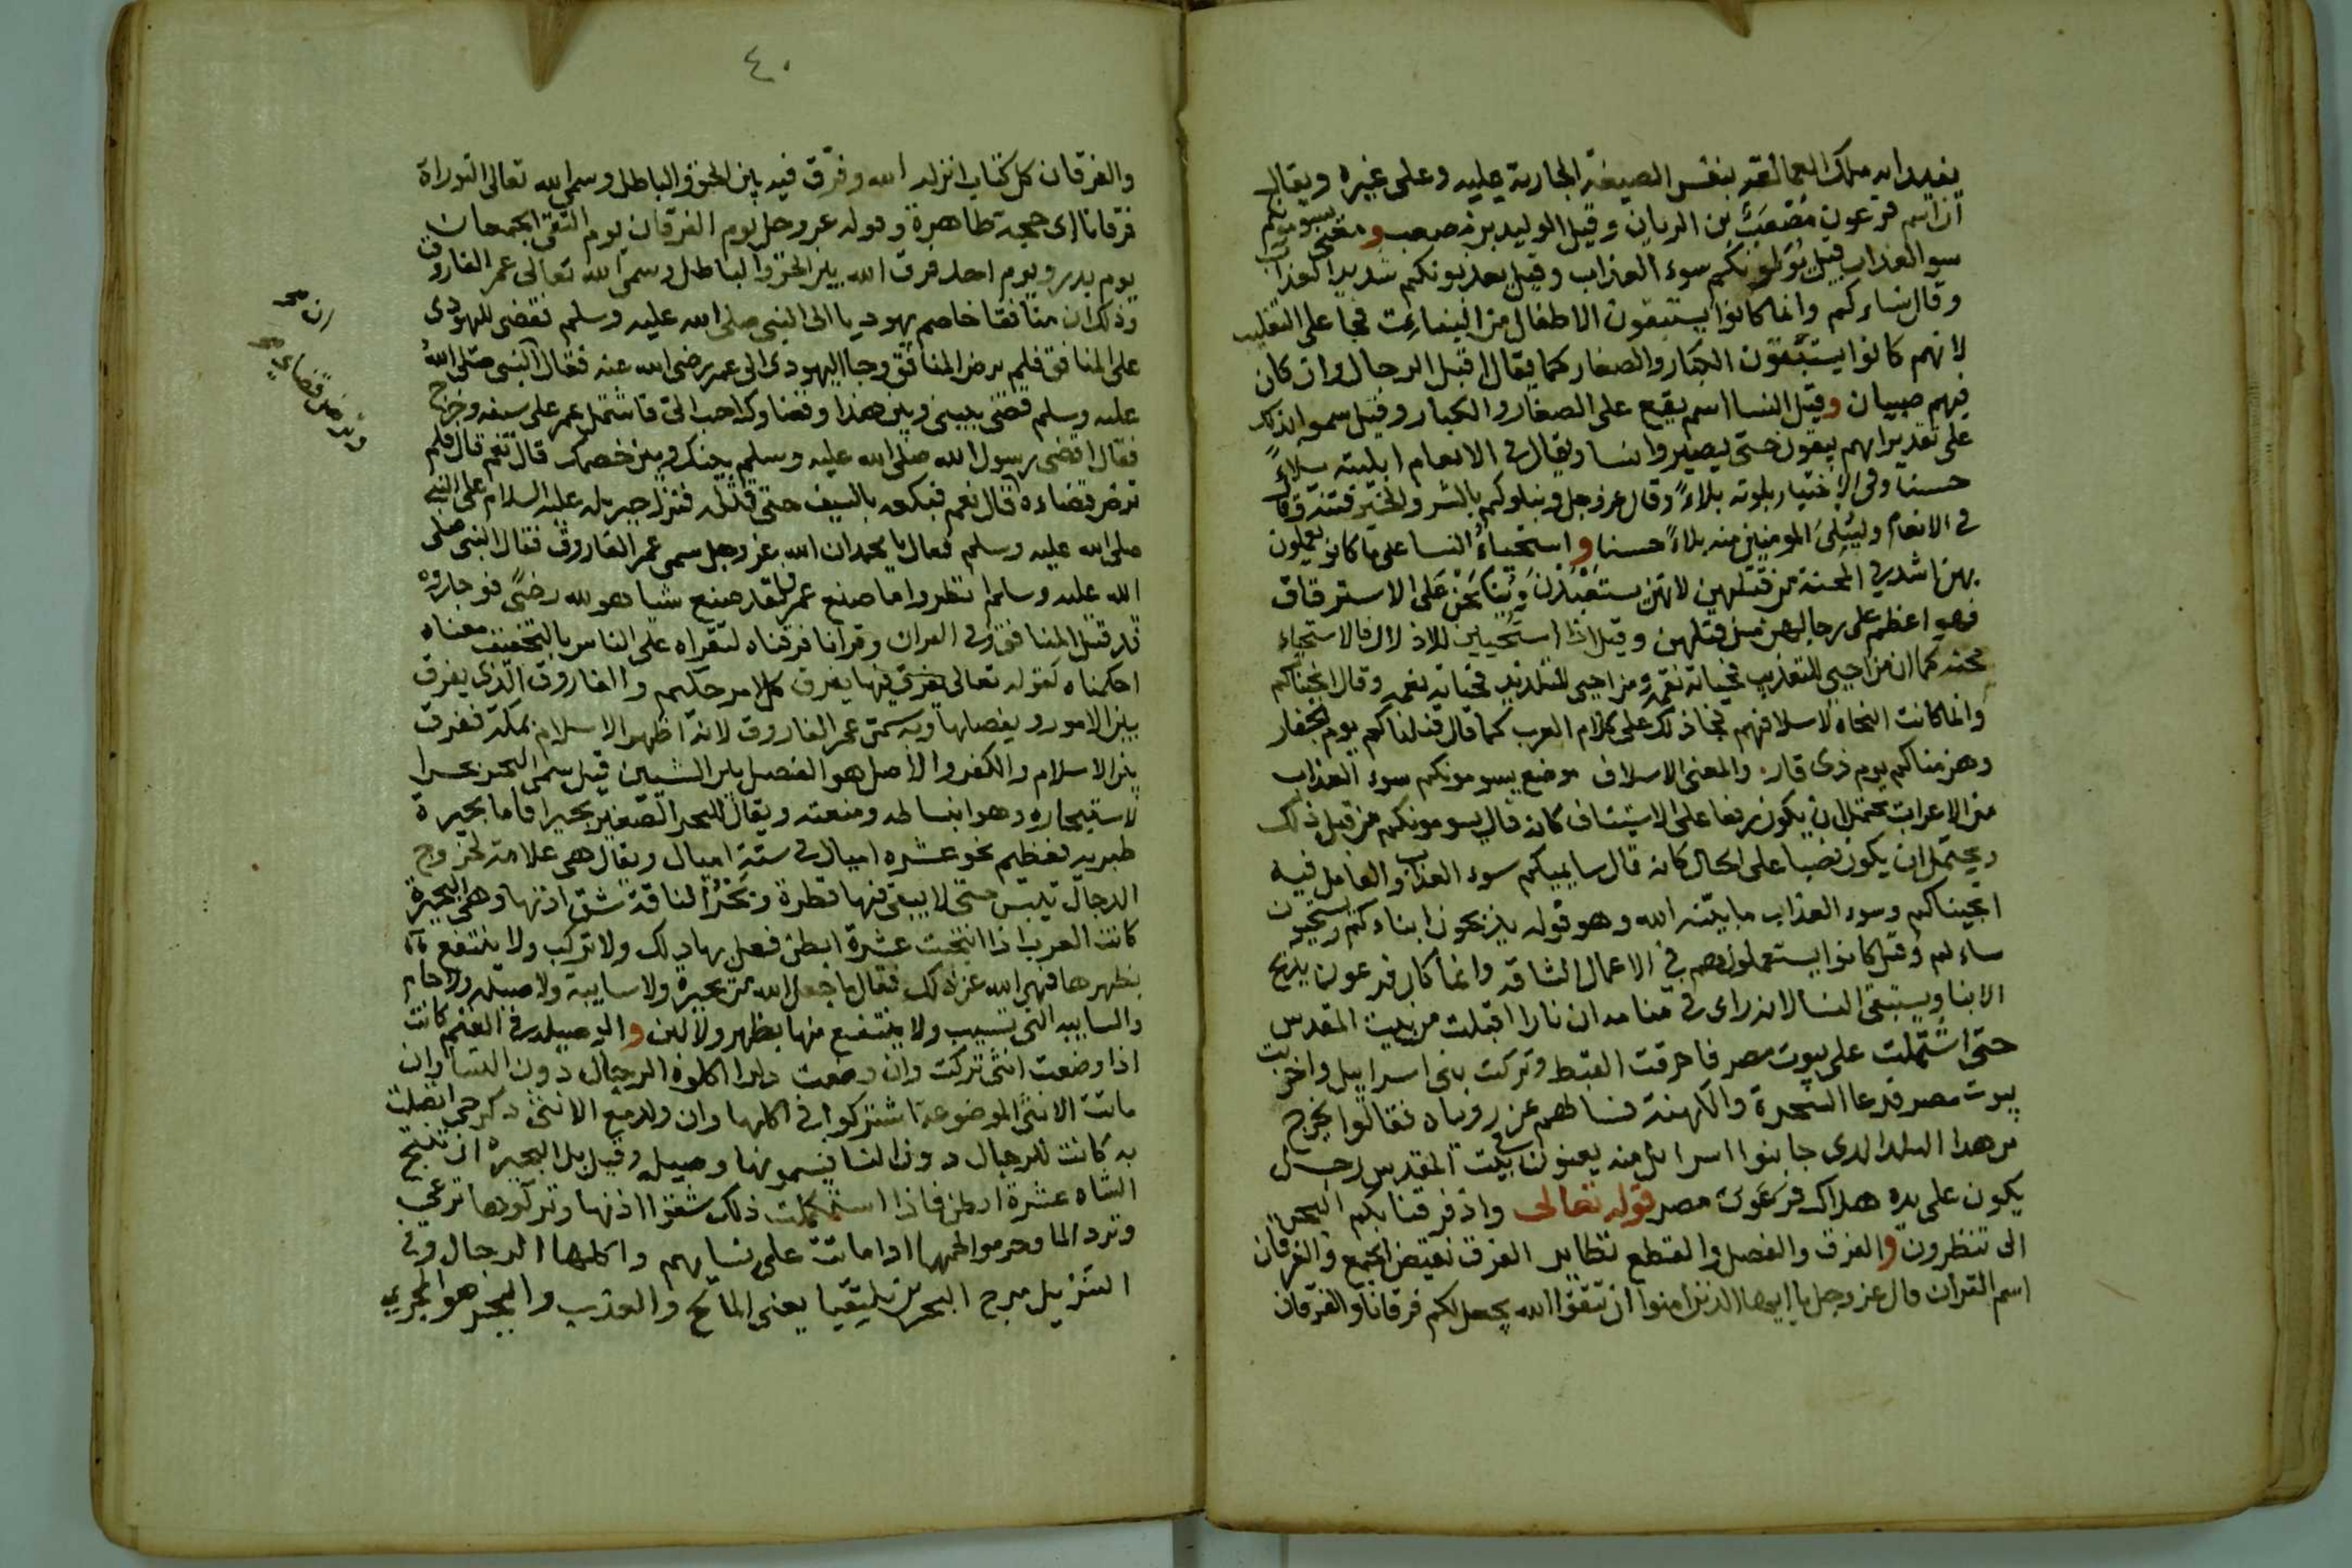 يفيد انه ملك العمالقة بنفس الصيغة الجارية عليه وعلى غيره ويقال
ان اسم فرعون مُصْعَبُ بن الريان وقيل الوليد بن مصعب ومعنى يسومونكم
سو العذاب قيل يُوَلّونكم سوء العذاب وقيل يعذبونكم شديد العذاب
وقال نساءكم وانما كانوا يستبقون الاطفال من البنات فجا على التغليب
لانهم كانوا يستبقون الكبار والصغار كما يقال اقبل الرجال وان كان
فيهم صبيان وقيل النسا اسم يقع على الصغار والكبار وقيل سموا بذلك
على تقدير انهم يبقون حتى يصيروا نسا ويقال في الانعام ابليته بلاءً
حسنا وفي الاختيار بلوته بلاءً وقال عز وجل ونبلوكم بالشر والخير فتنة وقال
في الانعام وليبلى المومنين منه بلاءً حسنا واستحياءُ النسا على ما كانو يعملون
بهن اشد في المحنة من قتلهن لانهن يستعبدن وينكحن على الاسترقاق
فهو اعظم على رجالهن من قتلهن وقيل اذا استحيين للاذلال فالاستحياء
محنة كما ان من احيى للتعذيب فحياته نقمة ومن احيى للتلذيذ فحياته نعمة وقال انجيناكم
وانما كانت النجاة لاسلافهم فجا ذلك على كلام العرب كما قال قتلناكم يوم الجفار
وهزمناكم يوم ذى قار والمعنى الاسلاف موضع يسومونكم سوء العذاب
من الاعراب يحتمل ان يكون رفعا على الاستئناف كانه قال يسومونكم من قبل ذلك
ويحتمل ان يكون نصبا على الحال كانه قال سايميكم سوء العذاب والعامل فيه
انجيناكم وسوء العذاب ما بينه الله وهو قوله يذبحون ابناءكم ويستحيون
نساءكم وقيل كانوا يستعملونهم في الاعمال الشاقة وانما كان فرعون يذبح
الابنا ويستبقى النسا لانه راى في منامه ان نارا اقبلت من بيت المقدس
حتى اشتملت على بيوت مصر فاحرقت القبط وتركت بنى اسراييل واخربت
بيوت مصر فدعا السحرة والكهنة فسالهم عن روياه فقالوا يخرج
من هذا البلد الذي جا بنوا اسرائل منه يعنون بيت المقدس رجل
يكون على يده هلاك فرعون مصر قوله تعالى واذ فرقنا بكم البحر
الى تنظرون والفرق والفصل والقطع نظاير الفرق نقيض الجمع والفرقان
اسم القران وقال عز وجل يا ايها الذين امنوا ان تتقوا الله يجعل لكم فرقانا والفرقان
٤٠
والفرقان كل كتاب انزله الله وفرّق فيه بين الحق والباطل وسمى الله تعالى التوراة
فرقانا اى حجة ظاهرة وقوله عز وجل يوم الفرقان يوم التقى الجمعان
يوم بدر ويوم احد فرق الله بين الحق والباطل وسمى الله تعالى عمر الفاروق
وذلك ان منافقا خاصم يهوديا الى النبى صلى الله عليه وسلم فقضى لليهودى
على المنافق فلم يرض المنافق وجا اليهودى الى عمر رضى الله عنه فقال النبى صلى الله
عليه وسلم قضى بيني وبين هذا فاشتمل عمر على سيفه وخرج
فقال اقضى رسول الله صلى الله عليه وسلم بينك وبين خصمك قال نعم قال فلم
ترض قضاءه قال نعم فبكعه بالسيف حتى قتله فنزل جبريل عليه السلام على النبى
صلى الله عليه وسلم فقال يا محمد ان الله عز وجل سمى عمر الفاروق فقال النبى صلى
الله عليه وسلم انظروا ما صنع عمر فلقد صنع شيا هو لله رضًى فوجدوه
قد قتل المنافق وفي القران وقرانا فرقناه لتقراه على الناس بالتخفيف معناه
احكمناه كقوله تعالى فيها يفرق كل امر حكيم والفاروق الذى يفرق
بين الامور ويفصلها وبه سمى عمر الفاروق لانه اظهر الاسلام بمكة ففرق
بين الاسلام والكفر والاصل هو الفصل بين الشيين قيل سمى البحر بحرا
لاستبحاره وهو انبساطه وسعته ويقال للبحر الصغير بحيرا فاما بحيرة
طبرية فعظيم نحو عشرة اميال في ستة اميال ويقال هى علامة لخروج
الدجال تيبس حتى لا يبقى فيها قطرة وبَحْرُ الناقة شق اذنها وهى البحيرة
كانت العرب اذا انتجت عشرة ابطن فعل بها ذلك ولا تركب ولا ينتفع
بظهرها فنهى الله عن ذلك فقال ما جعل الله من بحيرة ولا سايبة ولا وصيلة ولا حام
والسايبه التى تسيب ولا ينتفع منها بظهر ولا لبن والوصيلة في الغنم كانت
اذا وضعت انثى تركت وان وضعت ذكرا اكلوه الرجال دون النسا وان
ماتت الانثى الموضوعة اشتركوا في اكلها وان ولد مع الانثى ذكر حي اتصلت
به كانت للرجال دون النسا فيسمونها وصيلة وقيل بل البحيرة ان تنتج
الشاه عشرة ابطن فاذا استكملت ذلك شقوا اذنها وتركوها ترعى
وترد الما وحرموا لحمها اذا ماتت على نسايهم واكلها الرجال وفى
التنزيل مرج البحرين يلتقيا يعنى المالح والعذب والبحر هو المجرى